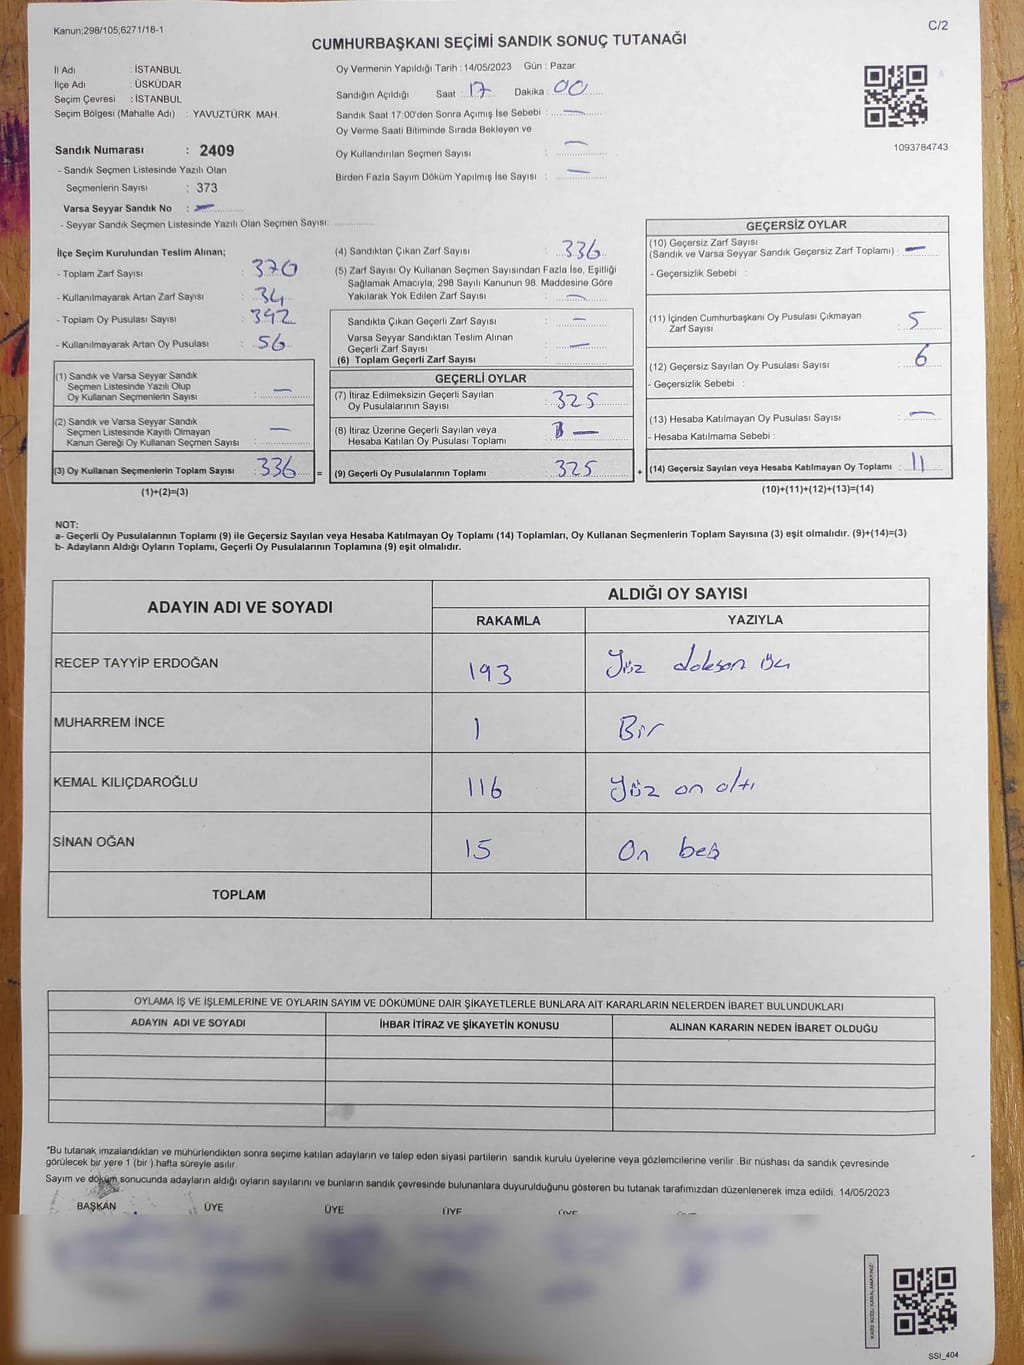 Kanun;298/105;6271/18-1
C/2
CUMHURBAŞKANI SEÇİMİ SANDIK SONUÇ TUTANAĞI
İl Adı : İSTANBUL
İlçe Adı : ÜSKÜDAR
Seçim Çevresi : İSTANBUL
Seçim Bölgesi (Mahalle Adı) : YAVUZTÜRK MAH.
Sandık Numarası : 2409
- Sandık Seçmen Listesinde Yazılı Olan
Seçmenlerin Sayısı : 373
Varsa Seyyar Sandık No : —
- Seyyar Sandık Seçmen Listesinde Yazılı Olan Seçmen Sayısı:
Oy Vermenin Yapıldığı Tarih : 14/05/2023 Gün : Pazar
Sandığın Açıldığı Saat : 17 Dakika : 00
Sandık Saat 17:00'den Sonra Açımış İse Sebebi : —
Oy Verme Saati Bitiminde Sırada Bekleyen ve
Oy Kullandırılan Seçmen Sayısı : —
Birden Fazla Sayım Döküm Yapılmış İse Sayısı : —
1093784743
İlçe Seçim Kurulundan Teslim Alınan;
- Toplam Zarf Sayısı : 370
- Kullanılmayarak Artan Zarf Sayısı : 34
- Toplam Oy Pusulası Sayısı : 392
- Kullanılmayarak Artan Oy Pusulası : 56
(1) Sandık ve Varsa Seyyar Sandık
Seçmen Listesinde Yazılı Olup
Oy Kullanan Seçmenlerin Sayısı : —
(2) Sandık ve Varsa Seyyar Sandık
Seçmen Listesinde Kayıtlı Olmayan
Kanun Gereği Oy Kullanan Seçmen Sayısı : —
(3) Oy Kullanan Seçmenlerin Toplam Sayısı : 336 =
(1)+(2)=(3)
(4) Sandıktan Çıkan Zarf Sayısı : 336
(5) Zarf Sayısı Oy Kullanan Seçmen Sayısından Fazla İse, Eşitliği
Sağlamak Amacıyla; 298 Sayılı Kanunun 98. Maddesine Göre
Yakılarak Yok Edilen Zarf Sayısı : —
Sandıkta Çıkan Geçerli Zarf Sayısı : —
Varsa Seyyar Sandıktan Teslim Alınan
Geçerli Zarf Sayısı : —
(6) Toplam Geçerli Zarf Sayısı :
GEÇERLİ OYLAR
(7) İtiraz Edilmeksizin Geçerli Sayılan
Oy Pusulalarının Sayısı : 325
(8) İtiraz Üzerine Geçerli Sayılan veya
Hesaba Katılan Oy Pusulası Toplamı : —
(9) Geçerli Oy Pusulalarının Toplamı : 325 +
GEÇERSİZ OYLAR
(10) Geçersiz Zarf Sayısı
(Sandık ve Varsa Seyyar Sandık Geçersiz Zarf Toplamı) : —
- Geçersizlik Sebebi :
(11) İçinden Cumhurbaşkanı Oy Pusulası Çıkmayan
Zarf Sayısı : 5
(12) Geçersiz Sayılan Oy Pusulası Sayısı : 6
- Geçersizlik Sebebi :
(13) Hesaba Katılmayan Oy Pusulası Sayısı : —
- Hesaba Katılmama Sebebi :
(14) Geçersiz Sayılan veya Hesaba Katılmayan Oy Toplamı : 11
(10)+(11)+(12)+(13)=(14)
NOT:
a- Geçerli Oy Pusulalarının Toplamı (9) ile Geçersiz Sayılan veya Hesaba Katılmayan Oy Toplamı (14) Toplamları, Oy Kullanan Seçmenlerin Toplam Sayısına (3) eşit olmalıdır. (9)+(14)=(3)
b- Adayların Aldığı Oyların Toplamı, Geçerli Oy Pusulalarının Toplamına (9) eşit olmalıdır.
ADAYIN ADI VE SOYADI ALDIĞI OY SAYISI
RAKAMLA YAZIYLA
RECEP TAYYİP ERDOĞAN 193 Yüz doksan üç
MUHARREM İNCE 1 Bir
KEMAL KILIÇDAROĞLU 116 Yüz on altı
SİNAN OĞAN 15 On beş
TOPLAM
OYLAMA İŞ VE İŞLEMLERİNE VE OYLARIN SAYIM VE DÖKÜMÜNE DAİR ŞİKAYETLERLE BUNLARA AİT KARARLARIN NELERDEN İBARET BULUNDUKLARI
ADAYIN ADI VE SOYADI İHBAR İTİRAZ VE ŞİKAYETİN KONUSU ALINAN KARARIN NEDEN İBARET OLDUĞU
*Bu tutanak imzalandıktan ve mühürlendikten sonra seçime katılan adayların ve talep eden siyasi partilerin sandık kurulu üyelerine veya gözlemcilerine verilir. Bir nüshası da sandık çevresinde
görülecek bir yere 1 (bir ) hafta süreyle asılır.
Sayım ve döküm sonucunda adayların aldığı oyların sayılarını ve bunların sandık çevresinde bulunanlara duyurulduğunu gösteren bu tutanak tarafımızdan düzenlenerek imza edildi. 14/05/2023
BAŞKAN ÜYE ÜYE ÜYE ÜYE
KARE KODU KARALAMAYINIZ!
SSI_404